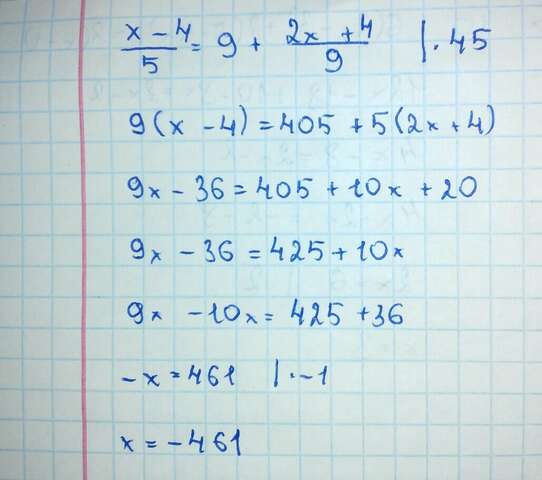 (x - 4)/5 = 9 + (2x + 4)/9 | · 45
9(x - 4) = 405 + 5(2x + 4)
9x - 36 = 405 + 10x + 20
9x - 36 = 425 + 10x
9x - 10x = 425 + 36
-x = 461 | · -1
x = -461